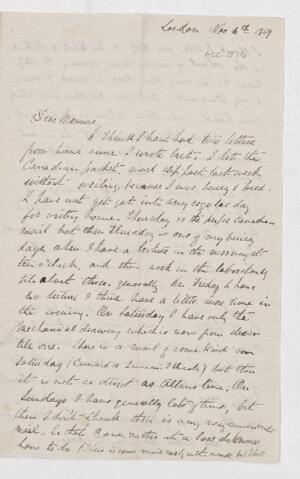 London Nov 6th 1869
Dear Mamma,
I think I have had two letters
from home since I wrote last. I let the
Canadian packet, week slip past last week
without writing, because I was busy & tired.
I have not yet got into any regular day
for writing home. Thursday is the proper Canadian
mail but then Thursday is one of my busy
days when I have a lecture in the morning at
ten o'clock, and then work in the laboratory
till about three. generally. On Friday I have
no lecture I think have a little more time in
the evening. On Saturday I have only the
mechanical drawing which is now from eleven
till one. There is a mail of some kind on
Saturday (Cunard or Inman I think) but then
it is not so direct as Allans line. On
Sundays I have generally lots of time, but
then I don't think there is any very convenient
mail. So that I am rather at a loss to know
how to do (There is some mail early in the week but I don't